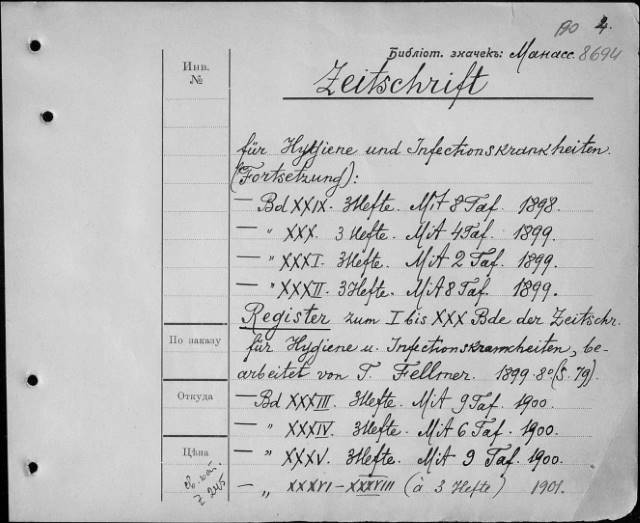 4.
Библіот. значекъ: Манасс. 8694
Инв.
№
Zeitschrift
für Hygiene und Infectionskrankheiten.
(Fortsetzung):
— Bd XXIX. 3 Hefte. Mit 8 Taf. 1898.
— " XXX. 3 Hefte. Mit 4 Taf. 1899.
— " XXXI. 3 Hefte. Mit 2 Taf. 1899.
— " XXXII. 3 Hefte. Mit 8 Taf. 1899.
Register zum I bis XXX Bde der Zeitschr.
für Hygiene u. Infectionskrankheiten, be-
arbeitet von T. Fellmer. 1899. 8° (S. 79).
— Bd XXXIII. 3 Hefte. Mit 9 Taf. 1900.
— " XXXIV. 3 Hefte. Mit 6 Taf. 1900.
— " XXXV. 3 Hefte. Mit 9 Taf. 1900.
— „ XXXVI–XXXVIII (à 3 Hefte) 1901.
По заказу
Откуда
Цѣна